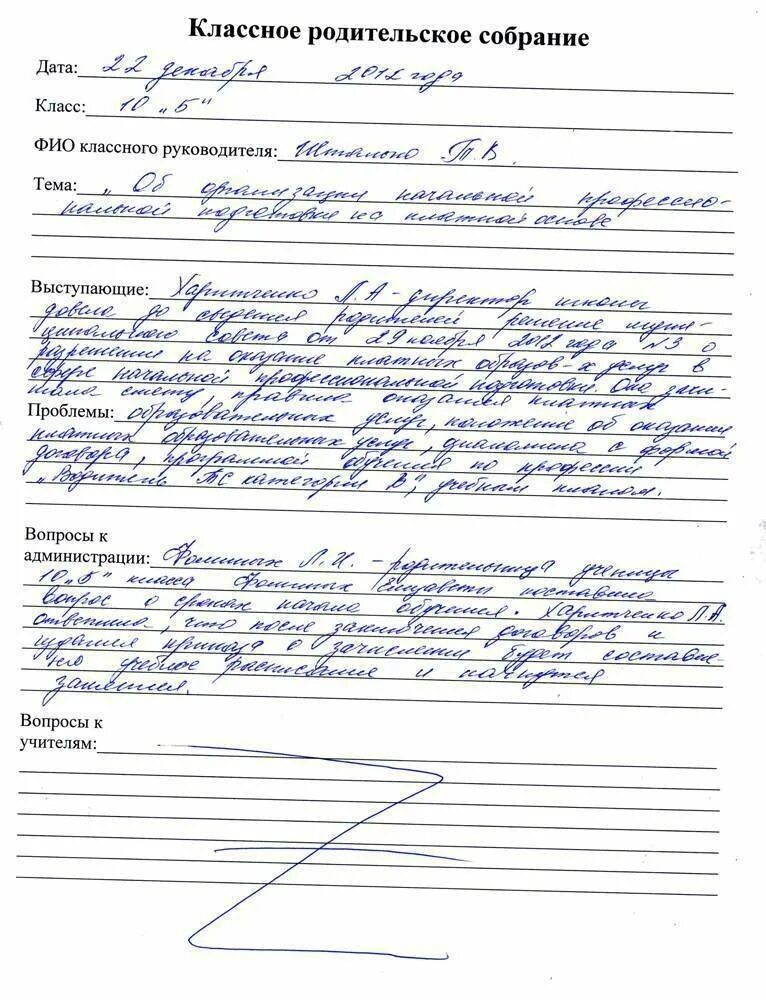 Классное родительское собрание
Дата: 22 декабря 2012 года
Класс: 10 „Б"
ФИО классного руководителя: Шталько Т.В.
Тема: „Об организации начальной профессио-
нальной подготовки на платной основе
Выступающие: Харитченко Л.А - директор школы
довела до сведения родителей решение муни-
ципального совета от 29 ноября 2012 года №3 о
разрешении на оказание платных образов-х услуг в
сфере начальной профессиональной подготовки. Она зачи-
тала смету, правила оказания платных
Проблемы: образовательных услуг, положение об оказании
платных образовательных услуг, ознакомила с формой
договора, программой обучения по профессии
„Водитель ТС категории В", учебным планом.
Вопросы к
администрации: Фоминых Л.И. - родительница ученицы
10 „Б" класса Фоминых Елизаветы поставила
вопрос о сроках начала обучения. Харитченко Л.А.
ответила, что после заключения договоров и
издания приказа о зачислении будет составле-
но учебное расписание и начнутся
занятия.
Вопросы к
учителям: